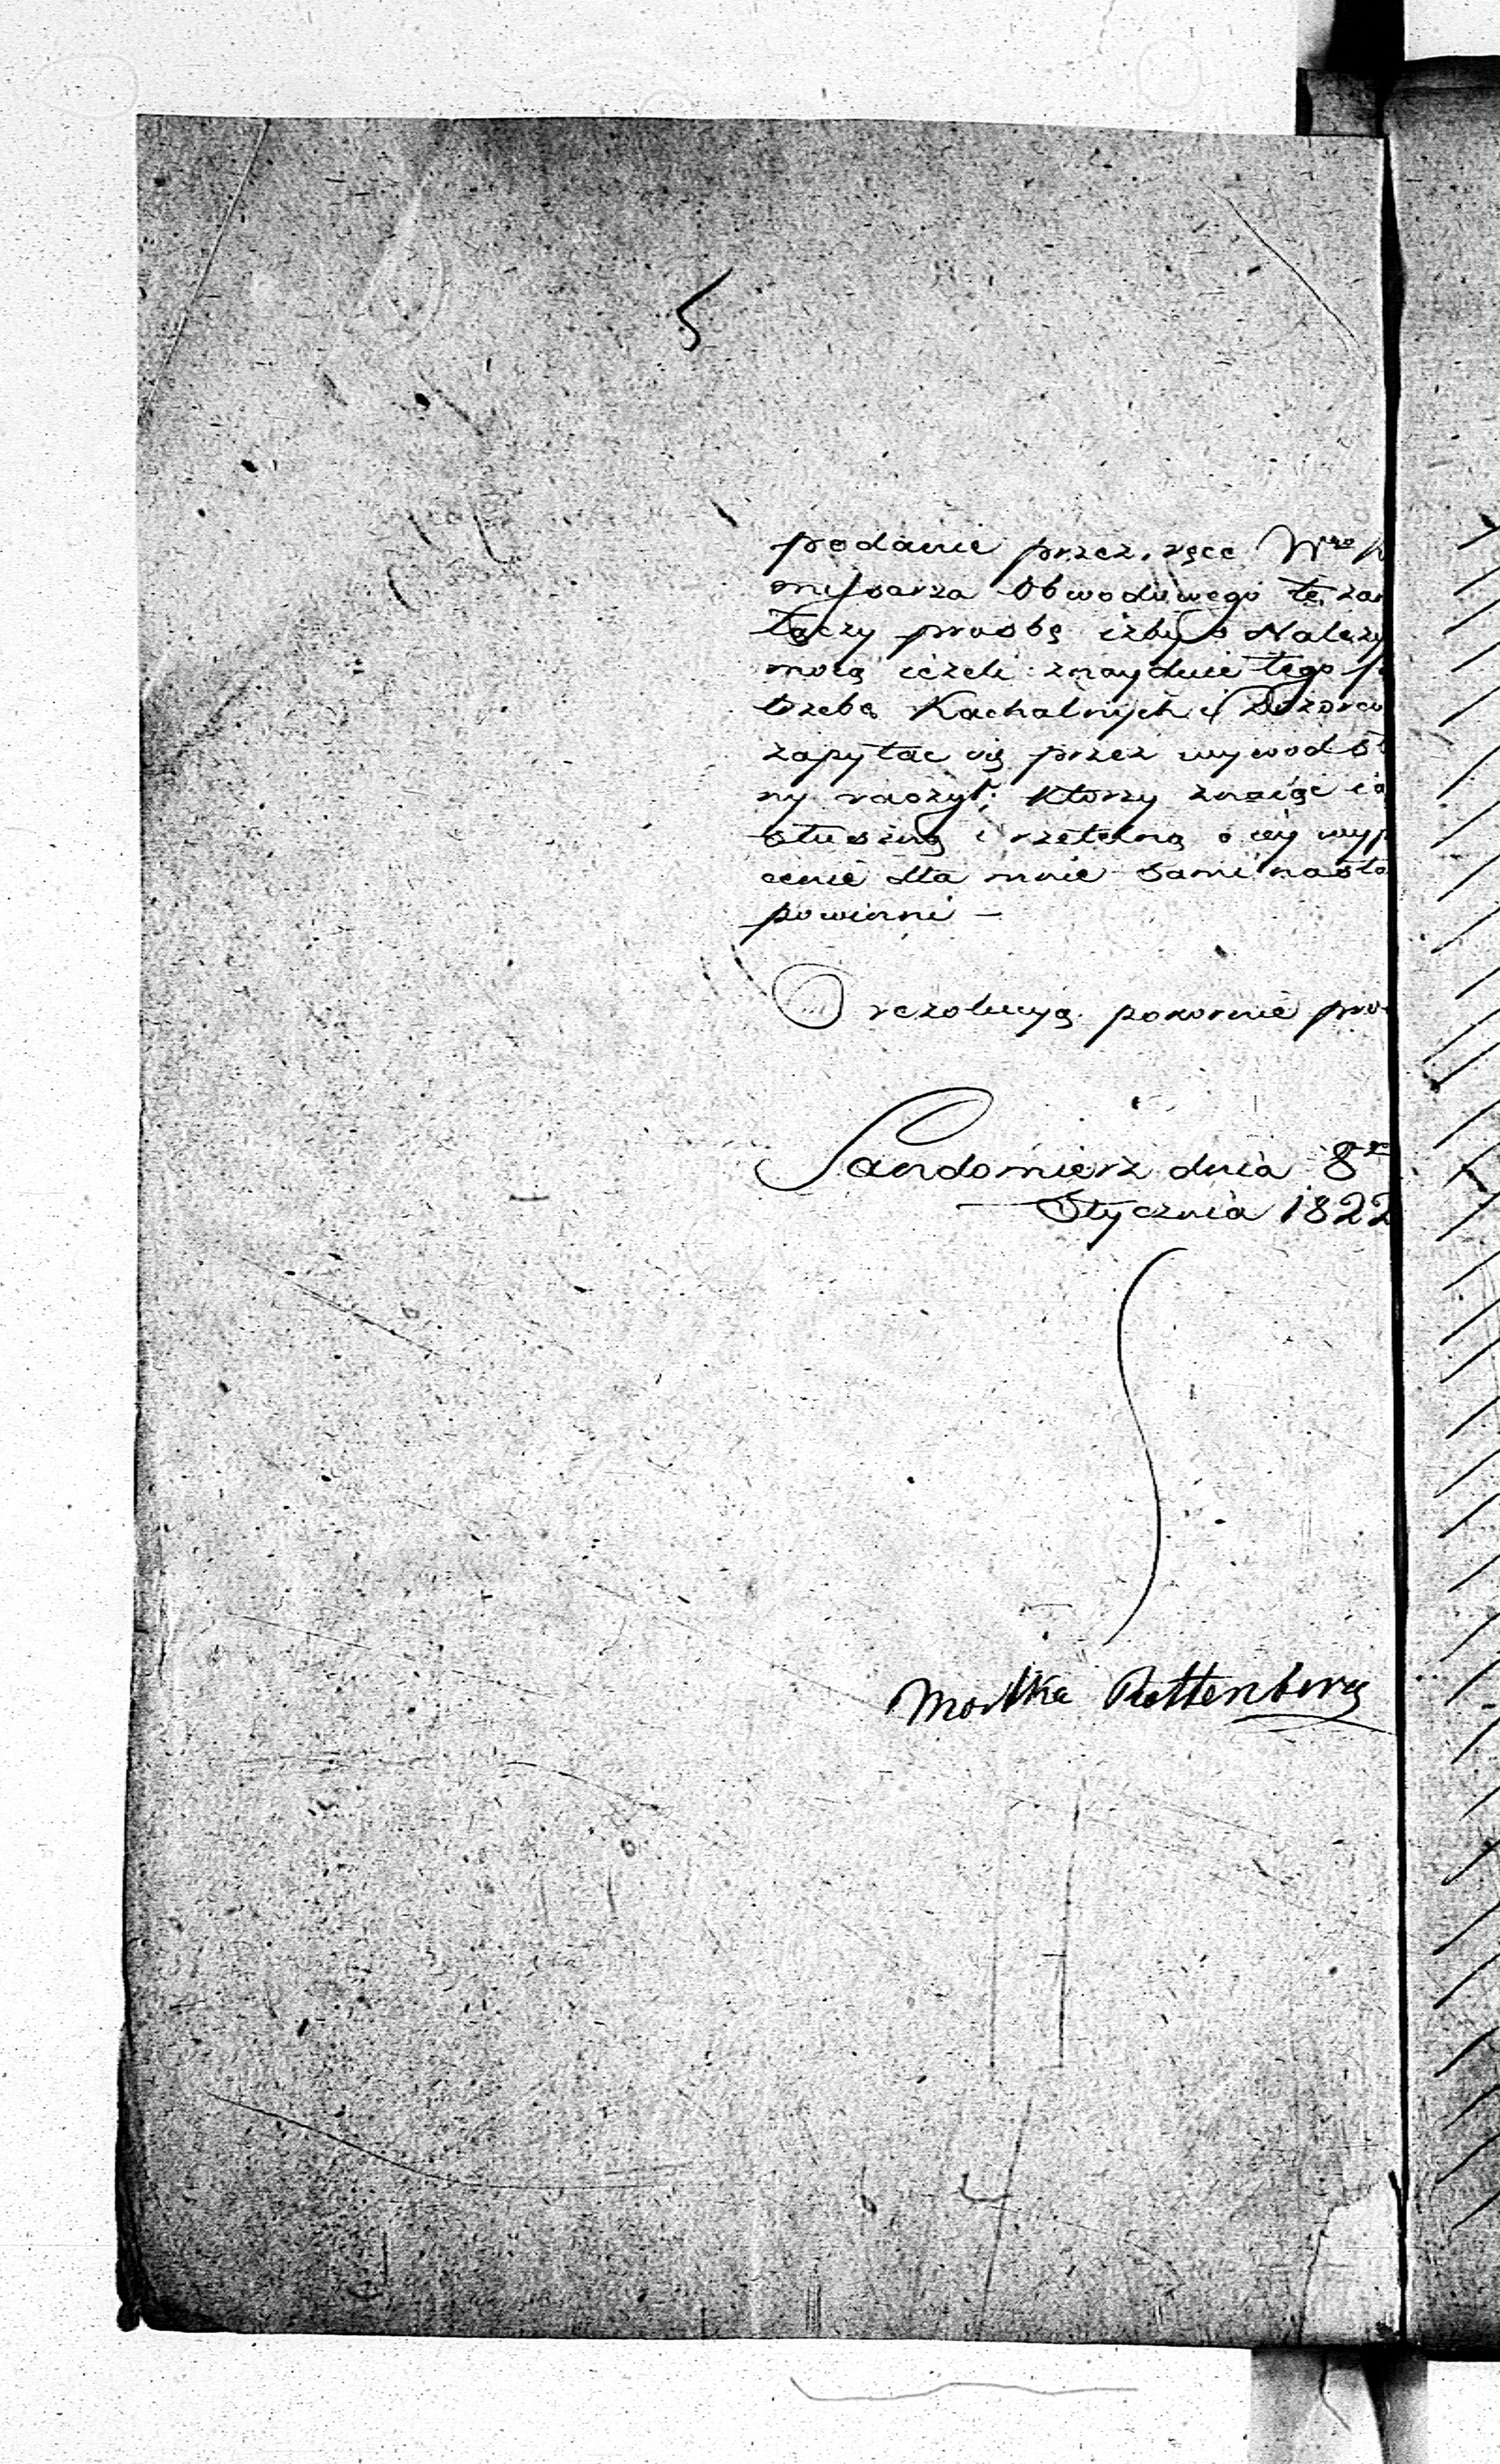 5
podanie przez ręce Wgo
missarza Obwodowego tę
łączy prosbę izby
moią ieżeli znayduie tego
trzebą Kachalnych i Dozorcu
zapytac się przez wywod
ny raczył; ktorzy znaiąc
słuszną i rzetelną
cenie dla mnie sami
powinni —
O rezolucyą pokornie
Sandomierz dnia 8go
Stycznia 1822
Mortka Rottenberg